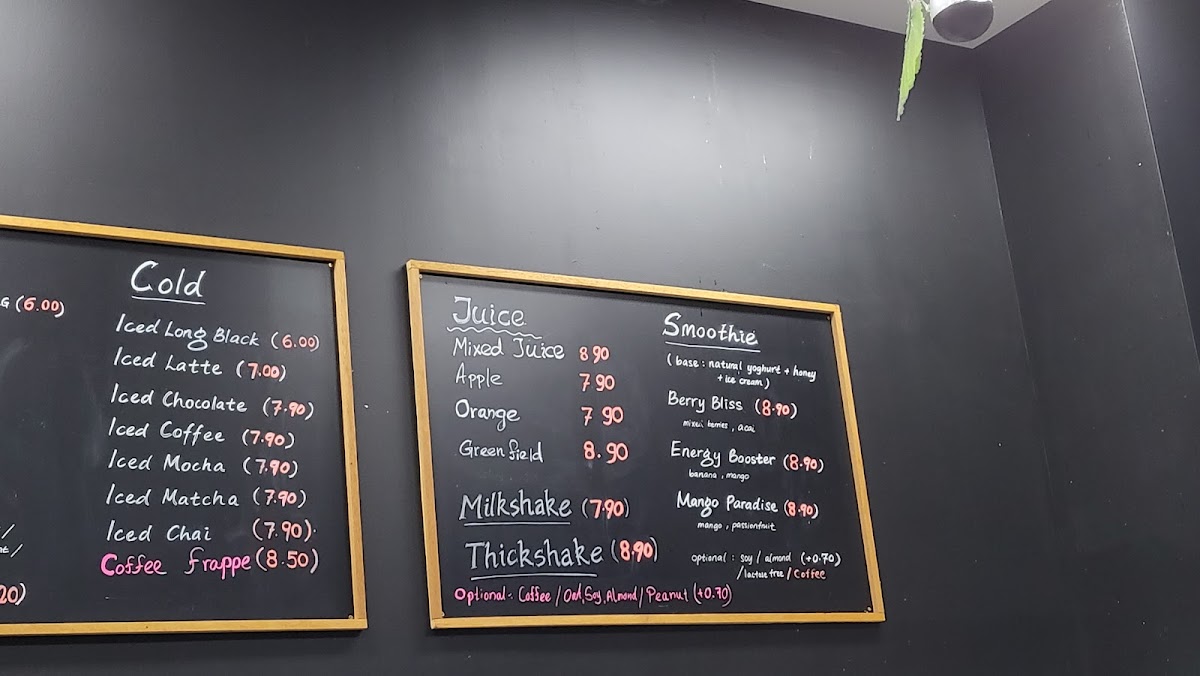 G (6.00)
20)
Cold
Iced Long Black (6.00)
Iced Latte (7.00)
Iced Chocolate (7.90)
Iced Coffee (7.90)
Iced Mocha (7.90)
Iced Matcha (7.90)
Iced Chai (7.90)
Coffee frappe (8.50)
Juice
Mixed Juice 8 90
Apple 7 90
Orange 7 90
Green field 8.90
Milkshake (7.90)
Thickshake (8.90)
Optional: Coffee / Oat, Soy, Almond / Peanut (+0.70)
Smoothie
(base: natural yoghurt + honey
+ ice cream)
Berry Bliss (8.90)
mixed berries, acai
Energy Booster (8.90)
banana, mango
Mango Paradise (8.90)
mango, passionfruit
optional: soy / almond (+0.70)
/ lactose free / Coffee